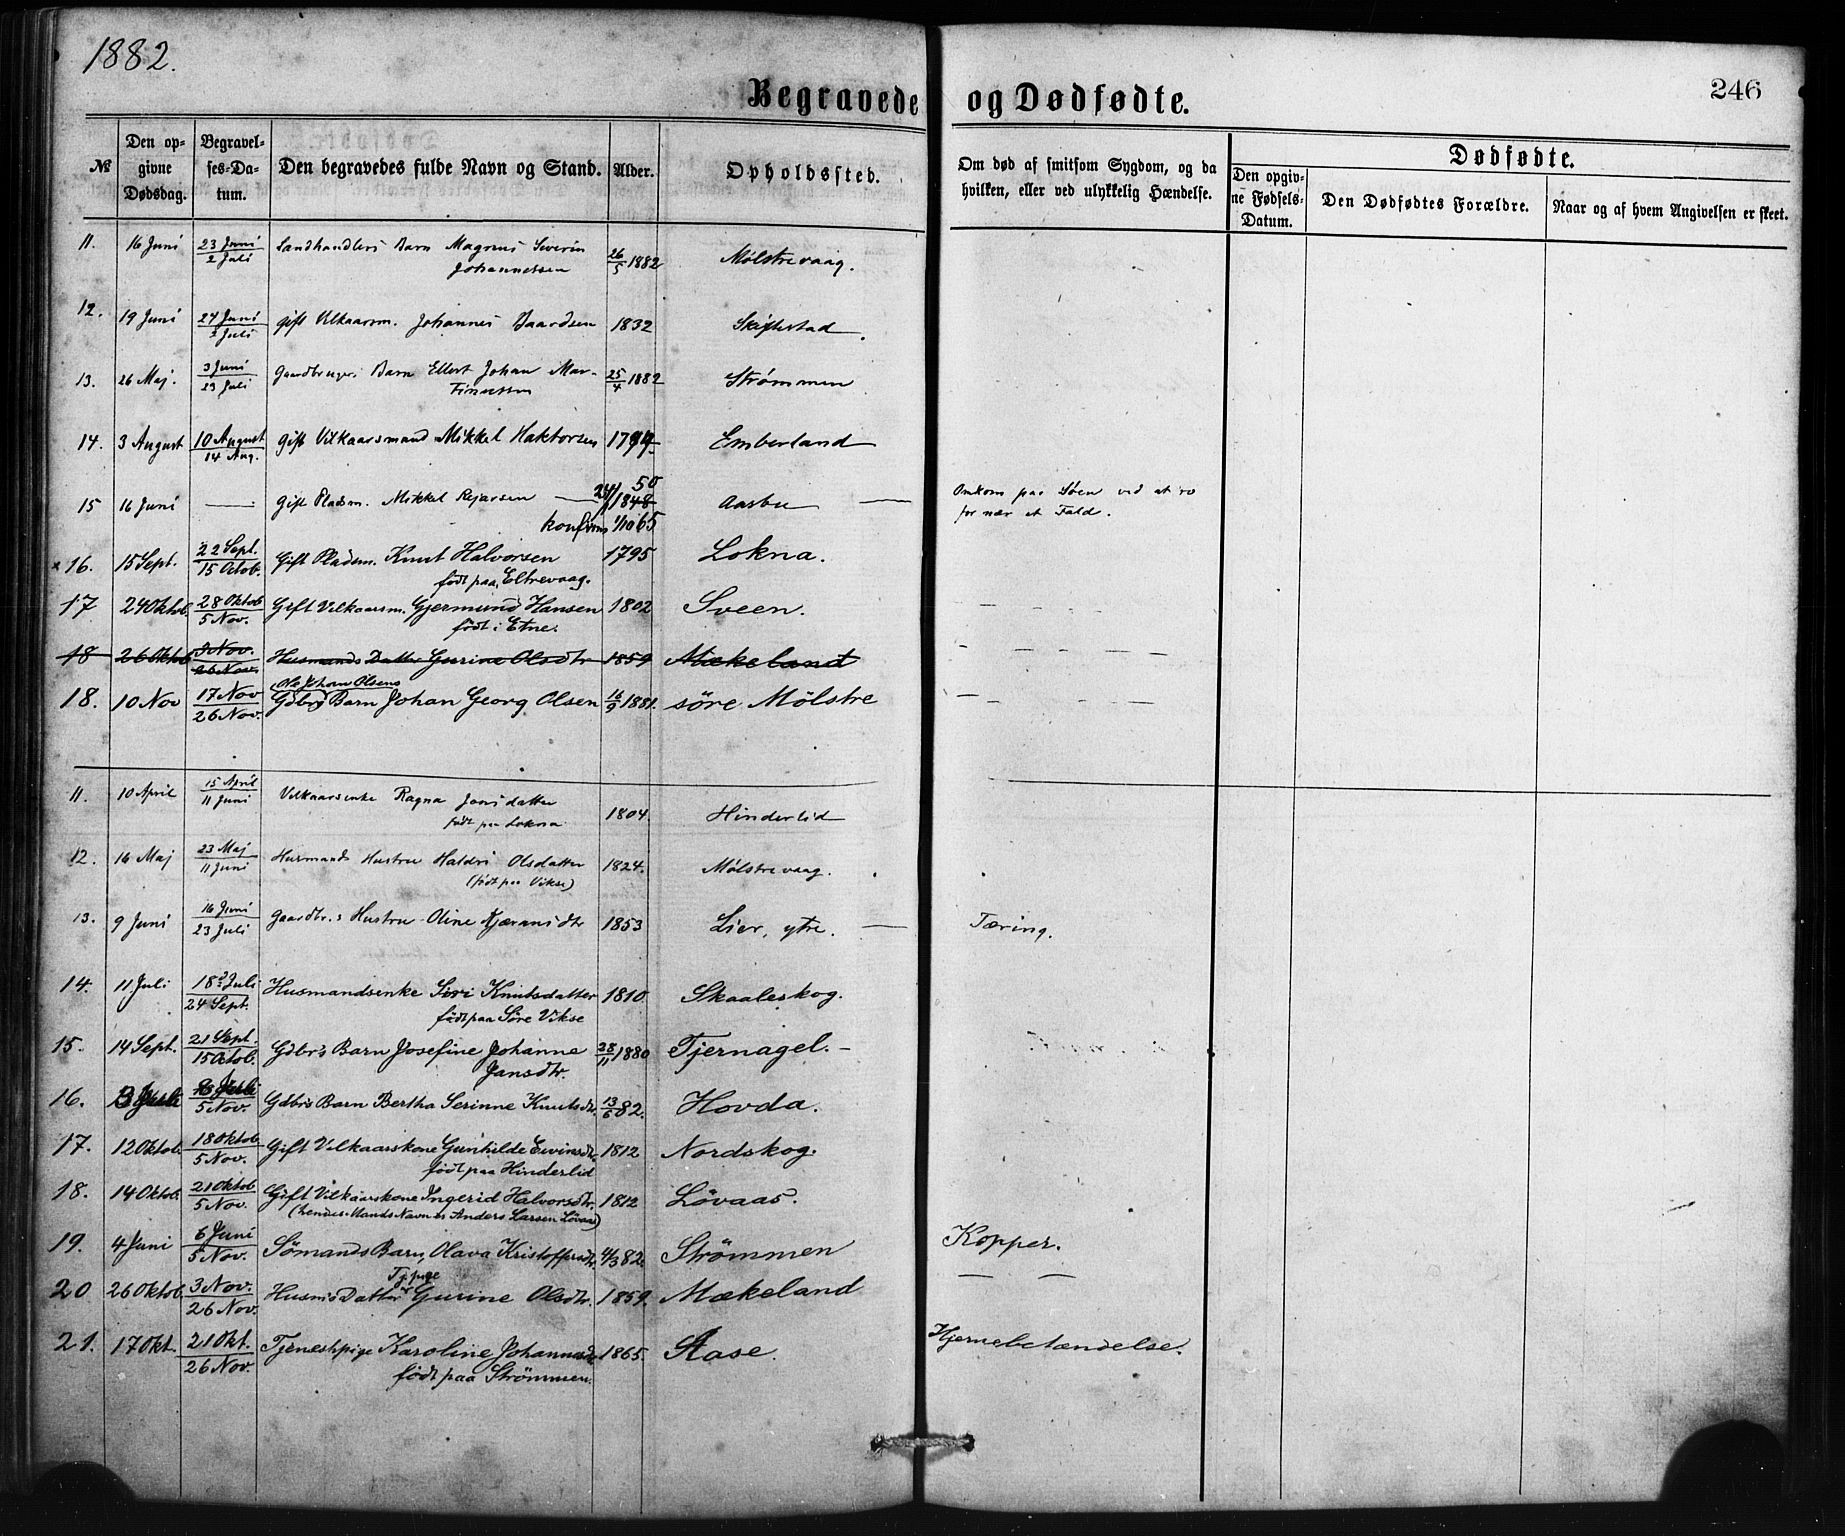 1882.
Begravede og Dødfødte.
246
№ Den opgivne Dødsdag. Begravelses-Datum. Den begravedes fulde Navn og Stand. Alder. Opholdssted. Om død af smitsom Sygdom, og da hvilken, eller ved ulykkelig Hændelse. Dødfødte.
Den opgivne Fødsels-Datum. Den Dødfødtes Forældre. Naar og af hvem Angivelsen er skeet.
11. 16 Juni 23 Juni / 2 Juli Landhandlers Barn Magnus Severin Johannessen 26/5 1882 Mølstrevaag.
12. 19 Juni 24 Juni / 2 Juli gift Vilkaarsm. Johannes Baardsen 1832 Skiftestad.
13. 26 Maj. 3 Juni / 23 Juli Gaardbrugers Barn Ellert Johan Mar-
tinessen 25/4 1882 Strømmen
14. 3 August 10 August / 14 Aug. gift Vilkaarsmand Mikkel Haktorsen Emberland
15 16 Juni — Gift Pladsm. Mikkel Rejarsen — 24/11 1848 50 Aasbu — Omkom paa Søen ved at ro
konfirm 1/10 65 for nær et Fald.
16. 15 Sept. 22 Sept. / 15 Octob. Gift Pladsm. Knut Halvorsen 1795 Lokna.
født paa Eltrevaag.
17. 24 Oktob. 28 Oktob / 5 Nov. Gift Vilkaarsm. Gjermund Hansen 1802 Sveen. — — — —
født i Etne.
18 26 Oktob 3 Nov. / 26 Nov. Husmands Datter Gurine Olsdtr 1859 Mækeland
Ole Johan Olsens
18. 10 Nov 17 Nov / 26 Nov. Gdbrs Barn Johan Georg Olsen 16/9 1881. søre Mølstre — — — —
11. 10 April 15 April / 11 Juni Vilkaarsenke Ragna Jonsdatter 1804. Hinderlid
født paa Lokna
12. 16 Maj 23 Maj / 11 Juni Husmands Hustru Haldri Olsdatter 1824. Mølstrevaag.
(født paa Vikse)
13. 9 Juni 16 Juni / 23 Juli Gaardbr.s Hustru Oline Kjæransdtr 1853 Lier, ytre. — Tæring.
14. 11 Juli 18 Juli / 24 Sept. Husmandsenke Siri Knutsdatter 1810. Skaaleskog.
født paa Søre Vikse
15. 14 Sept. 21 Sept. / 15 Octob. Gdbr's Barn Josefine Johanne 28/11 1880 Tjernagel. —
Jansdtr.
16. 3 Juli Juli / 5 Nov. Gdbrs Barn Bertha Serinne Knutsdtr. 13/6 82. Hovda.
17. 12 Oktob. 18 Oktob / 5 Nov. Gift Vilkaarskone Gunhilde Eivinsdtr. 1812 Nordskog.
født paa Hinderlid
18. 14 Oktob. 21 Oktob / 5 Nov. Gift Vilkaarskone Ingerid Halvorsdtr. 1812 Lövaas.
(hendes Mands Navn er Anders Larsen Lövaas)
19. 4 Juni 6 Juni / 5 Nov. Sömands Barn, Olava Kristoffersdtr. 4/3 82. Strömmen Kopper.
Tj. pige
20 26 Oktob. 3 Nov. / 26 Nov. Husms Datter Gurine Olsdtr. 1859. Mækeland — —
21. 17 Okt. 21 Okt. / 26 Nov. Tjenestpige Karoline Johannesdtr 1865. Aase. Hjernebetændelse.
født paa Strömmen.